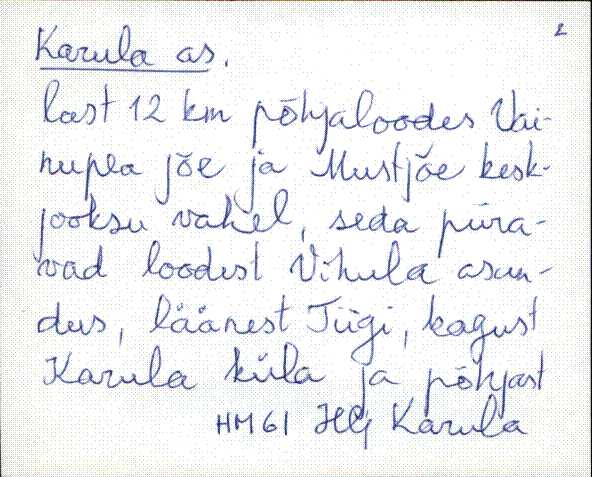 2
Karula as.
last 12 km põhjaloodes Vai-
nupea jõe ja Mustjõe kesk-
jooksu vahel, seda piira-
vad loodest Vihula asun-
dus, läänest Tiigi, kagust
Karula küla ja põhjast
HM61 Hlj Karula